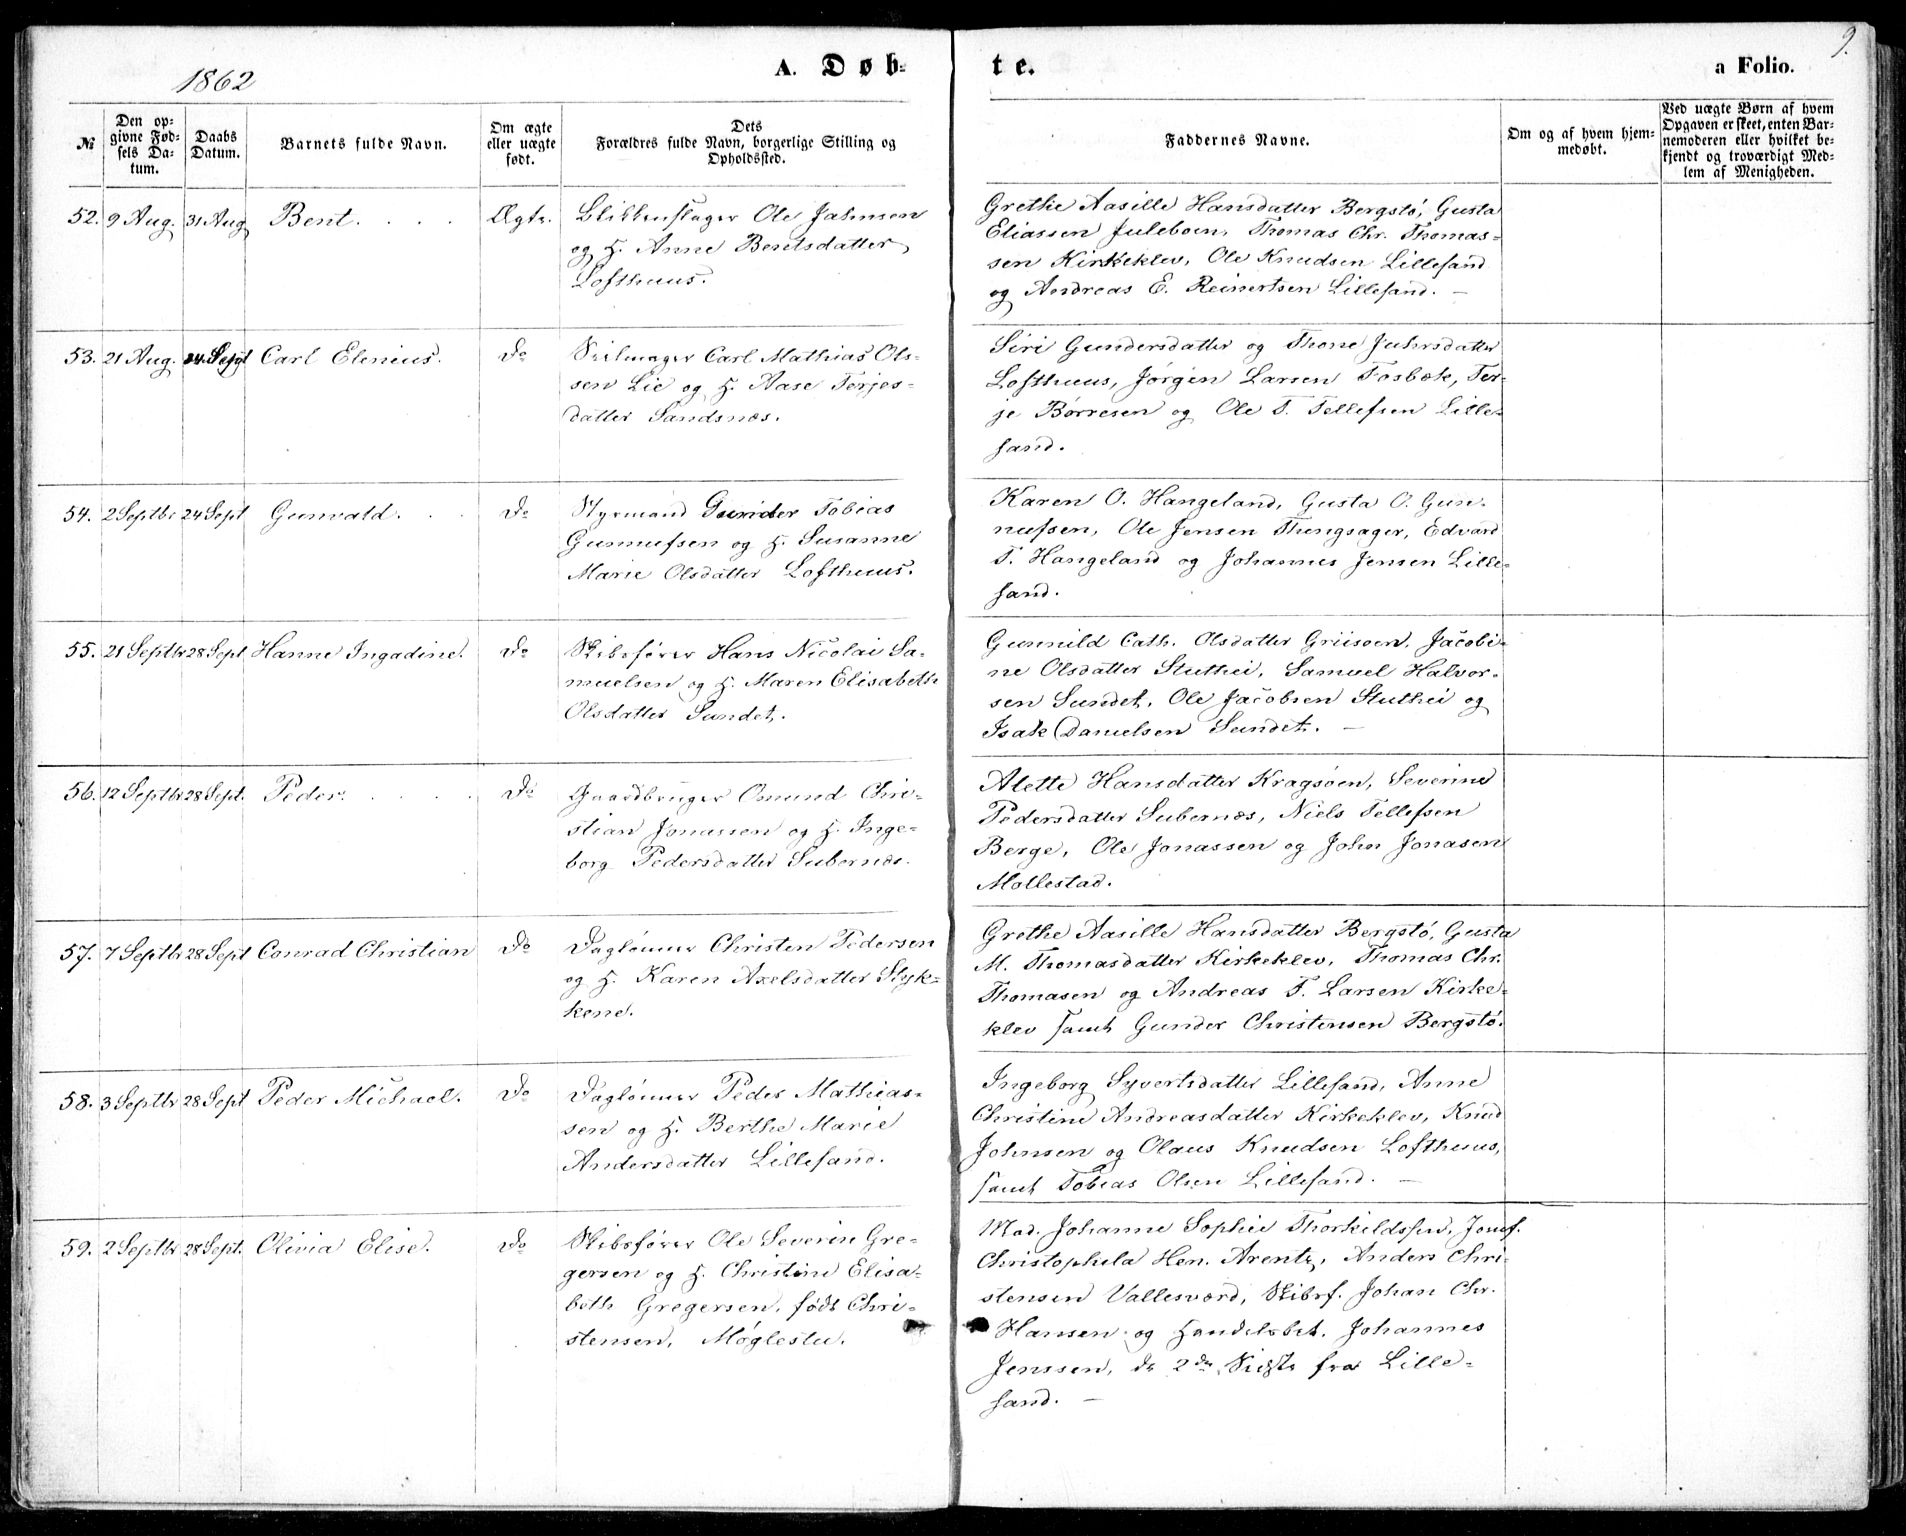 1862
A. Døb-
te.
a Folio.
9.
№
Den op-
givne Fød-
sels Da-
tum.
Daabs
Datum.
Barnets fulde Navn.
Om ægte
eller uægte
født.
Dets
Forældres fulde Navn, borgerlige Stilling og
Opholdssted.
Faddernes Navne.
Om og af hvem hjem-
medøbt.
Ved uægte Børn af hvem
Opgaven er skeet, enten Bar-
nemoderen eller hvilket be-
kjendt og troværdigt Med-
lem af Menigheden.
52. 9 Aug. 31 Aug Bent. Ægte.
Blikkenslager Ole Jahnsen
og H. Anne Bentsdatter
Lofthuus.
Grethe Aasille Hansdatter Bergstø, Gusta
Eliassen Juleboen, Thomas Chr. Thomas-
sen Kirkeklev, Ole Knudsen Lillesand
og Andreas E. Reinertsen Lillesand. —
53. 21 Aug. 24 Sept Carl Elenius. Do
Seilmager Carl Mathias Ols-
sen Lie og H. Aase Terjes-
datter Sandsnæs.
Siri Gundersdatter og Thone Juhrsdatter
Lofthuus, Jørgen Larsen Fosbæk, Ter-
je Børresen og Ole T. Tellefsen Lille-
sand.
54. 2 Septbr 24 Sept Gunvald. Do
Styrmand Gunder Tobias
Gunnufsen og H. Susanne
Marie Olsdatter Lofthuus.
Karen O. Hangeland, Gusta O. Gun-
nufsen, Ole Jensen Thingsager, Edvard
T. Hangeland og Johannes Jensen Lille-
sand.
55. 21 Septbr 28 Sept Hanne Ingadine. Do
Skibsfører Hans Nicolai Sa-
muelsen og H. Maren Elisabeth
Olsdatter Sundet.
Gunnild Cath. Olsdatter Griisøen, Jacobi-
ne Olsdatter Stuthei, Samuel Halvor-
sen Sundet, Ole Jacobsen Stuthei og
Isak Danielsen Sundet. —
56. 12 Septbr 28 Sept. Peder. Do
Gaardbruger Omund Chri-
stian Jonassen og H. Inge-
borg Pedersdatter Subernæs.
Alette Hansdatter Kragsøen, Severine
Pedersdatter Subernæs, Niels Tellefsen
Berge, Ole Jonassen og John Jonasen
Mollestad.
57. 7 Septbr 28 Sept Conrad Christian Do
Daglønner Christen Pedersen
og H. Karen Axelsdatter Styk-
kene.
Grethe Aasille Hansdatter Bergstø, Gusta
M. Thomasdatter Kirkeklev, Thomas Chr.
Thomasen og Andreas T. Larsen Kirke-
klev samt Gunder Christensen Bergstø.
58. 3 Septbr 28 Sept Peder Michael. Do
Daglønner Peder Mathias-
sen og H. Berthe Marie
Andersdatter Lillesand.
Ingeborg Syvertsdatter Lillesand, Anne
Christine Andreasdatter Kirkeklev, Knud
Johnsen og Olaus Knudsen Lofthuus,
samt Tobias Olsen Lillesand. —
59. 2 Septbr 28 Sept. Olivia Elise. Do
Skibsfører Ole Severin Gre-
gersen og H. Christine Elisa-
beth Gregersen, født Chri-
stensen, Møglestu.
Mad. Johanne Sophie Thorkildsen, Jomf.
Christophila Hen. Arentz, Anders Chri-
stensen Vallesværd, Skibsf. Johan Chr.
Hansen og Handelsbet. Johannes
Jenssen, de 2de Sidste fra Lille-
sand. —